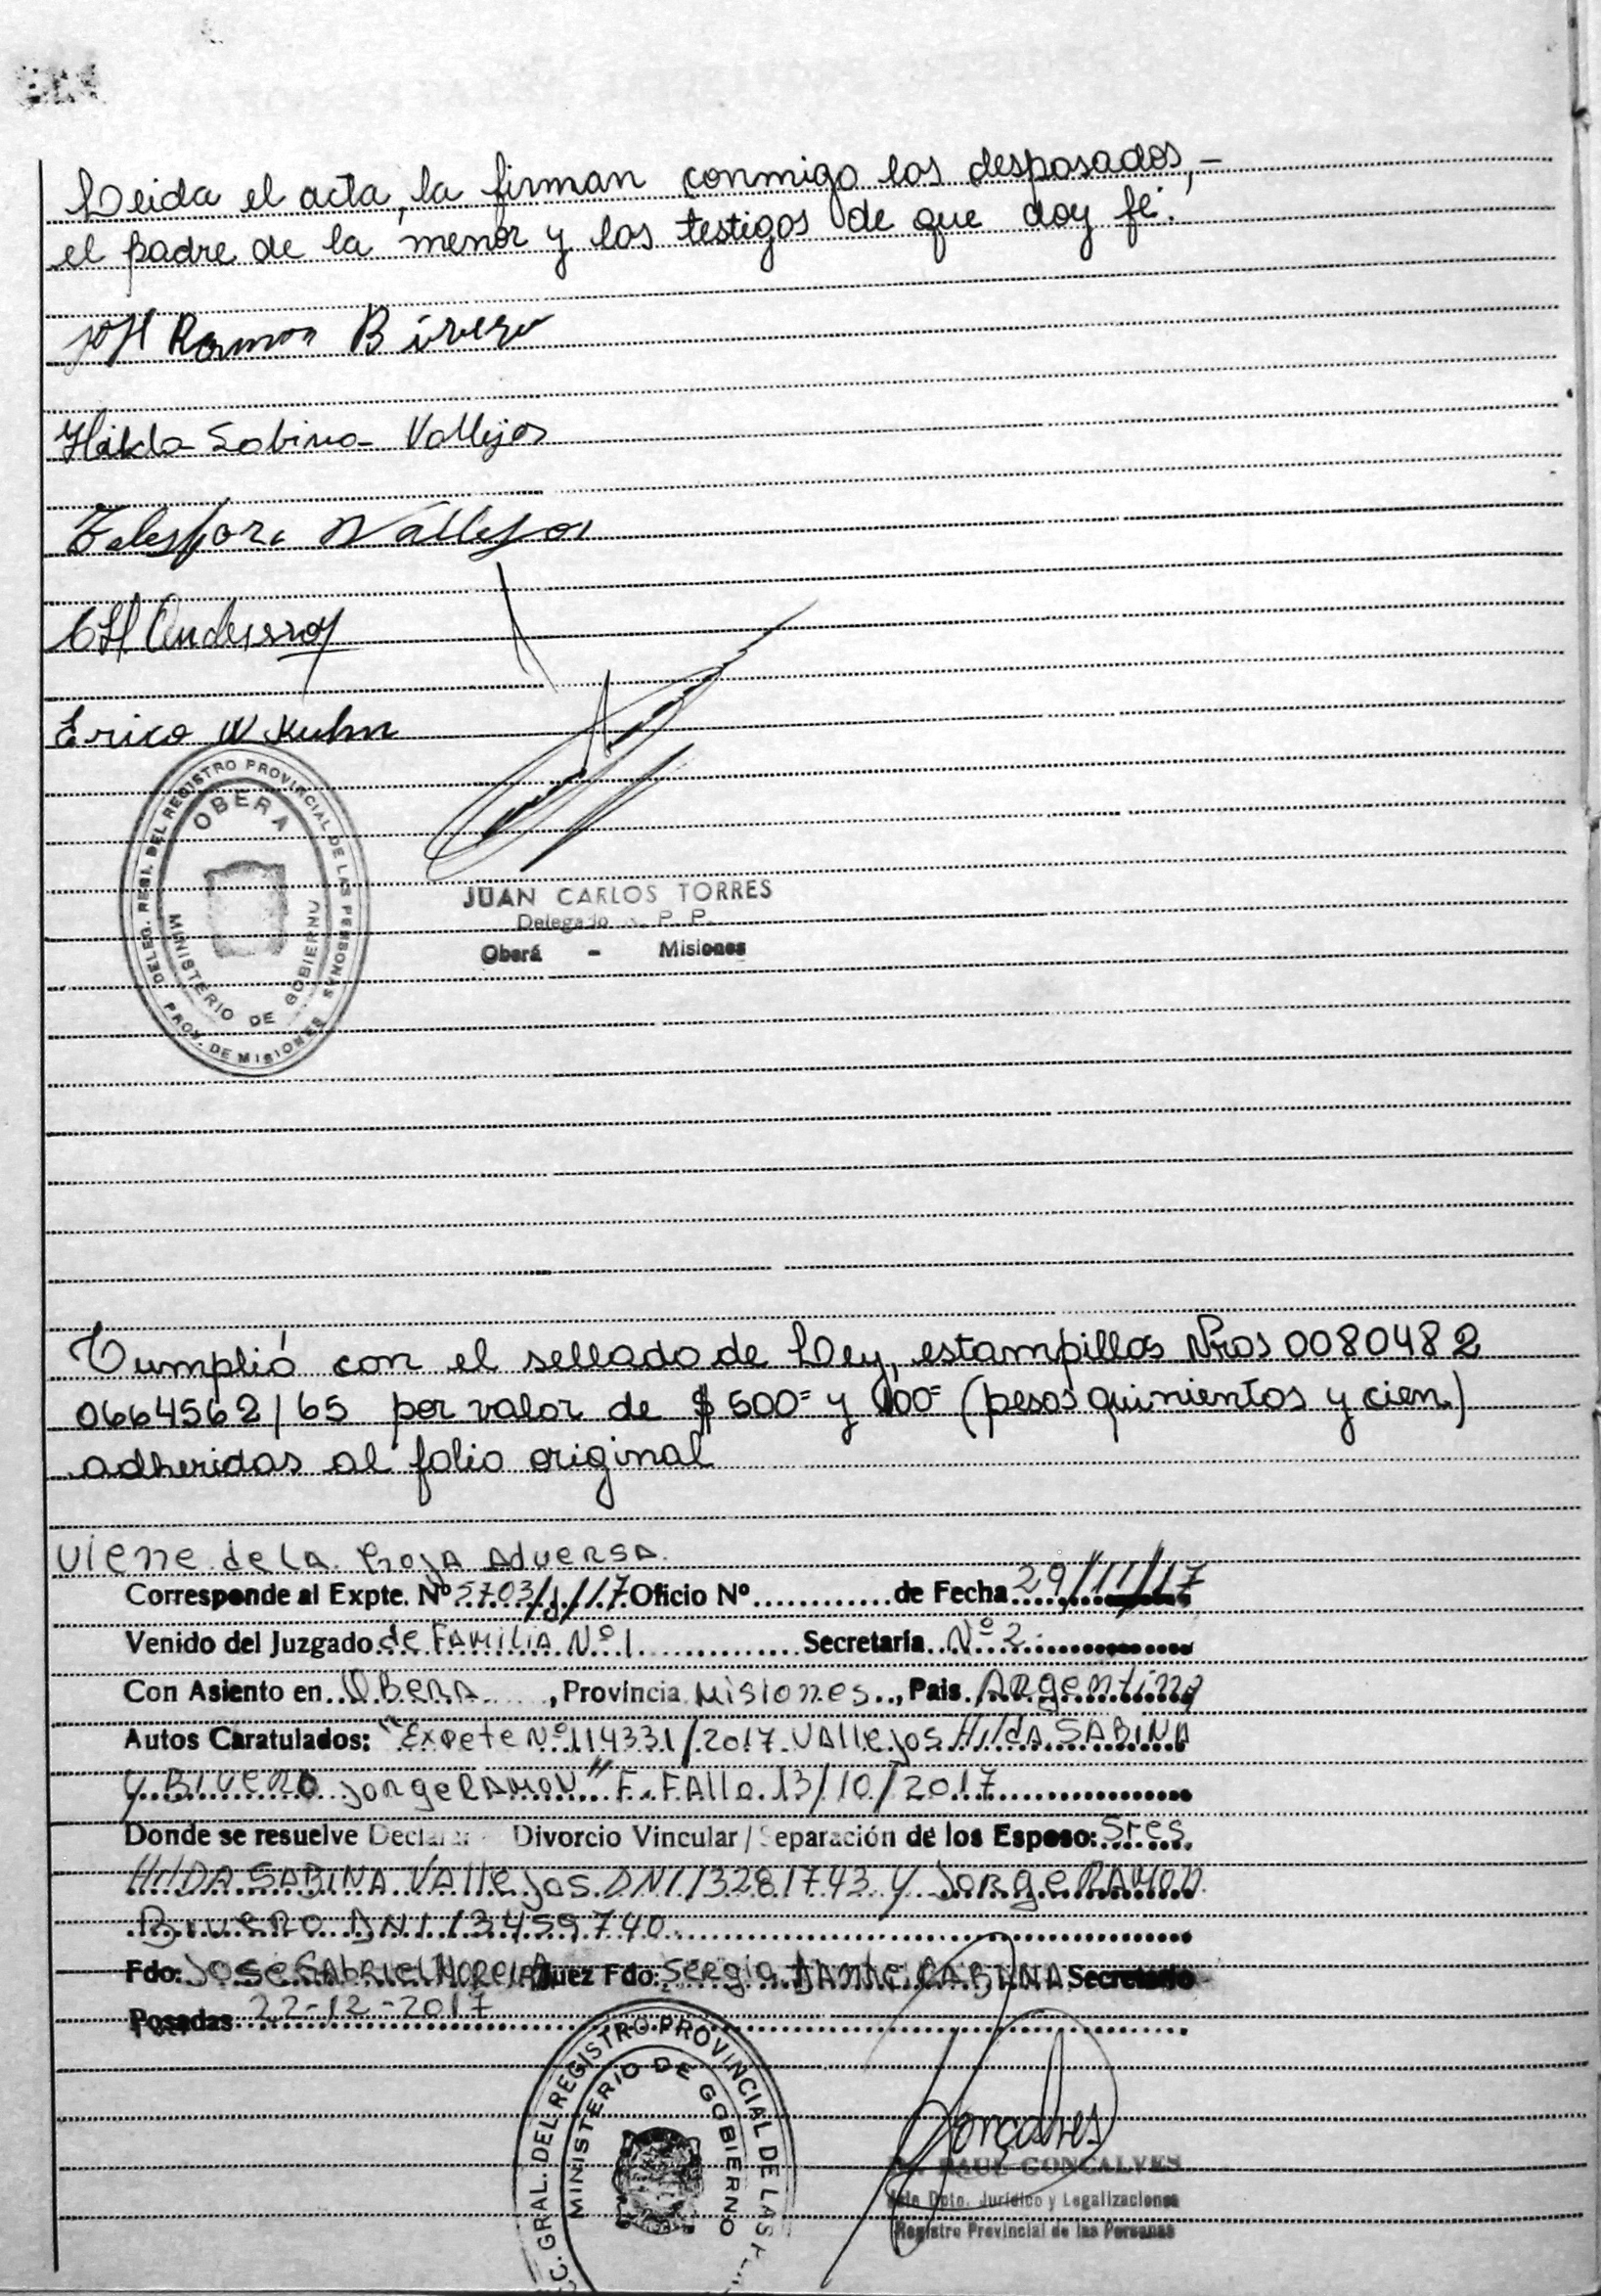 Leida el acta, la firman conmigo los desposados,-
el padre de la menor y los testigos de que doy fé.
Ramon Bivero
Hilda Sabina Vallejos
Telesforo Vallejos
Andersson
Erico W Kuhn
DELEG. REGI. DEL REGISTRO PROVINCIAL DE LAS PERSONAS
OBERA
MINISTERIO DE GOBIERNO
PROV. DE MISIONES
JUAN CARLOS TORRES
Delegado R. P. P.
Oberá - Misiones
Cumplió con el sellado de Ley, estampillas Nros 0080482
0664562/65 por valor de $ 500= y 100= (pesos quinientos y cien)
adheridas al folio original
Viene de la hoja adversa.
Corresponde al Expte. Nº 5703/J/17 Oficio Nº ............ de Fecha 29/11/17
Venido del Juzgado de Familia Nº 1 Secretaría Nº 2
Con Asiento en Obera, Provincia Misiones, Pais Argentina
Autos Caratulados: "Expete Nº 114331/2017 Vallejos Hilda SABINA
y BIVERO Jorge RAMON" F. FAllo 13/10/2017
Donde se resuelve Declarar Divorcio Vincular / Separación de los Esposo: Sres
HILDA SABINA Vallejos DNI 13281743 y Jorge RAMON
BIVERO DNI 13459740
Fdo: Jose Gabriel MOREIRA Juez Fdo: Sergio DANTE CABANA Secretario
Posadas 22-12-2017
GRAL. DEL REGISTRO PROVINCIAL DE LAS
MINISTERIO DE GOBIERNO
Goncalves
RAUL GONCALVES
Jefe Dpto. Jurídico y Legalizaciones
Registro Provincial de las Personas